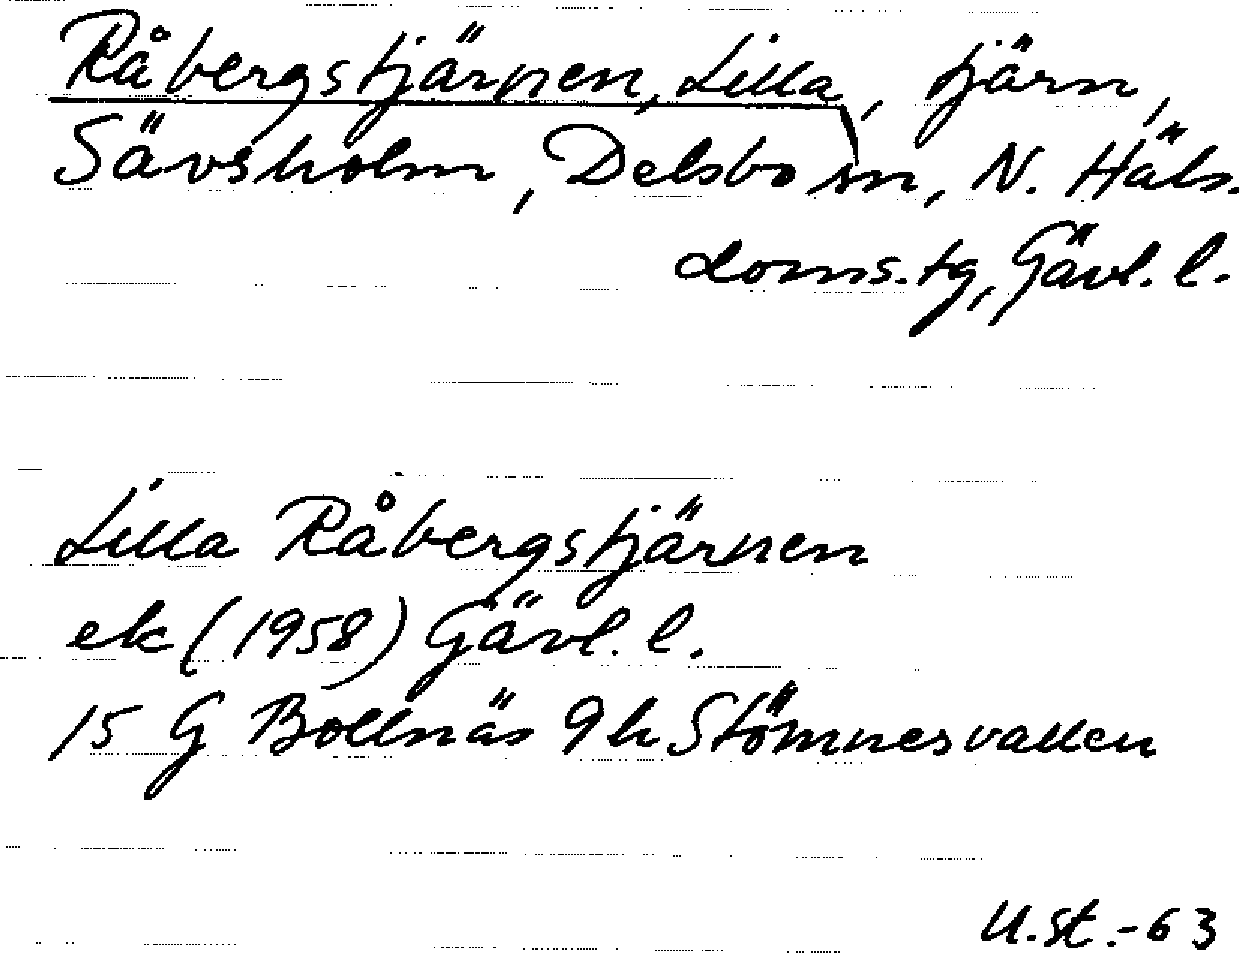 Råbergstjärnen, Lilla, tjärn,
Sävsholm, Delsbo sn, N. Häls.
doms.tg, Gävl. l.
Lilla Råbergstjärnen
ek (1958) Gävl. l.
15 G Bollnäs 9h Stömnesvallen
U.St.-63